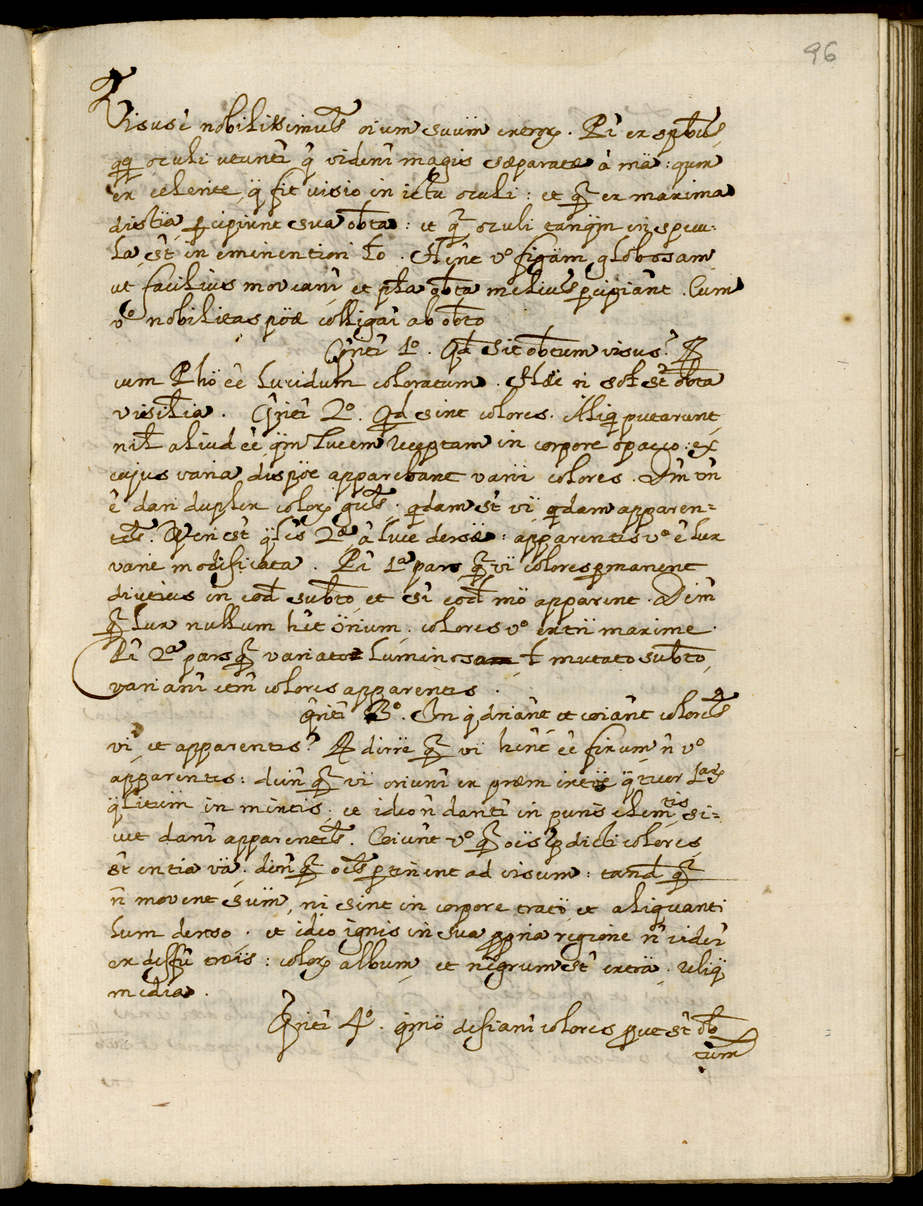 96
Visus ē nobilissimus oium suum extrorũ. Pī ex spbus
qq oculi utuntī q̄ videnī magis sæparatæ à mā: qum
ex celerite, q̄ fit visio in ictu oculi: et q̄ ex maxima
distīa percipiunt sua obta: et q̄ oculi tanqm in specu-
la st̄ in eminentiori lo. Hinc vo figām globosam
ut facilius moveanī et pła obta melius percipiānt. Cum
vo nobilitas pōæ colligaī ab obto
Qritī 1o. Qd sit obtum visus? R
cum Phō ēē lucidum coloratum. Hæc n̄ sol st̄ obta
visilia. Qritī 2o. Qd sint colores. Aliq putarunt
nil aliud ēē qm lucem receptam in corpore opaco: ex
cujus varia dispōe apparebant varii colores. Dm̄ tn̄
ē dari duplex colorũ gus. qdam st̄ vī qdam apparen-
tes. Ven st̄ qtēs 2æ à luce dersæ: apparentes vo ē lux
varie modificata. Pī 1a pars q̄ vī colores permanent
diutius in eod subto, et sī eod mō apparent. Deīn
q̄ lux nullum hēt ōrium. colores vo extī maxime.
Pī 2a pars q̄ variato luminoso ł mutato subto,
varianī etm̄ colores apparentes.
Qritī 3o. In q driānt et cōiānt colores
vī, et apparentes? R dirrē q̄ vī hēnt ēē fixum n̄ vo
apparentes: deīn q̄ vī oriunī ex præm intīē qtuor 1arũ
qlitum in mixtis; et ideo n̄ dantī in puris elemtis si-
cut danī apparentes. Cōiunt vo q̄ oes pdicti colores
st̄ entia vā: deīn q̄ oes pertinent ad visum: tand q̄
n̄ movent sūm, ni sint in corpore trato et aliquanti
lum denso. et ideo ignis in sua propria regione n̄ videī
ex deffū trois: colorũ album, et nigrum st̄ extrā. reliq
media.
Qritī 4o. qmō defianī colores prout st̄ ob
tum